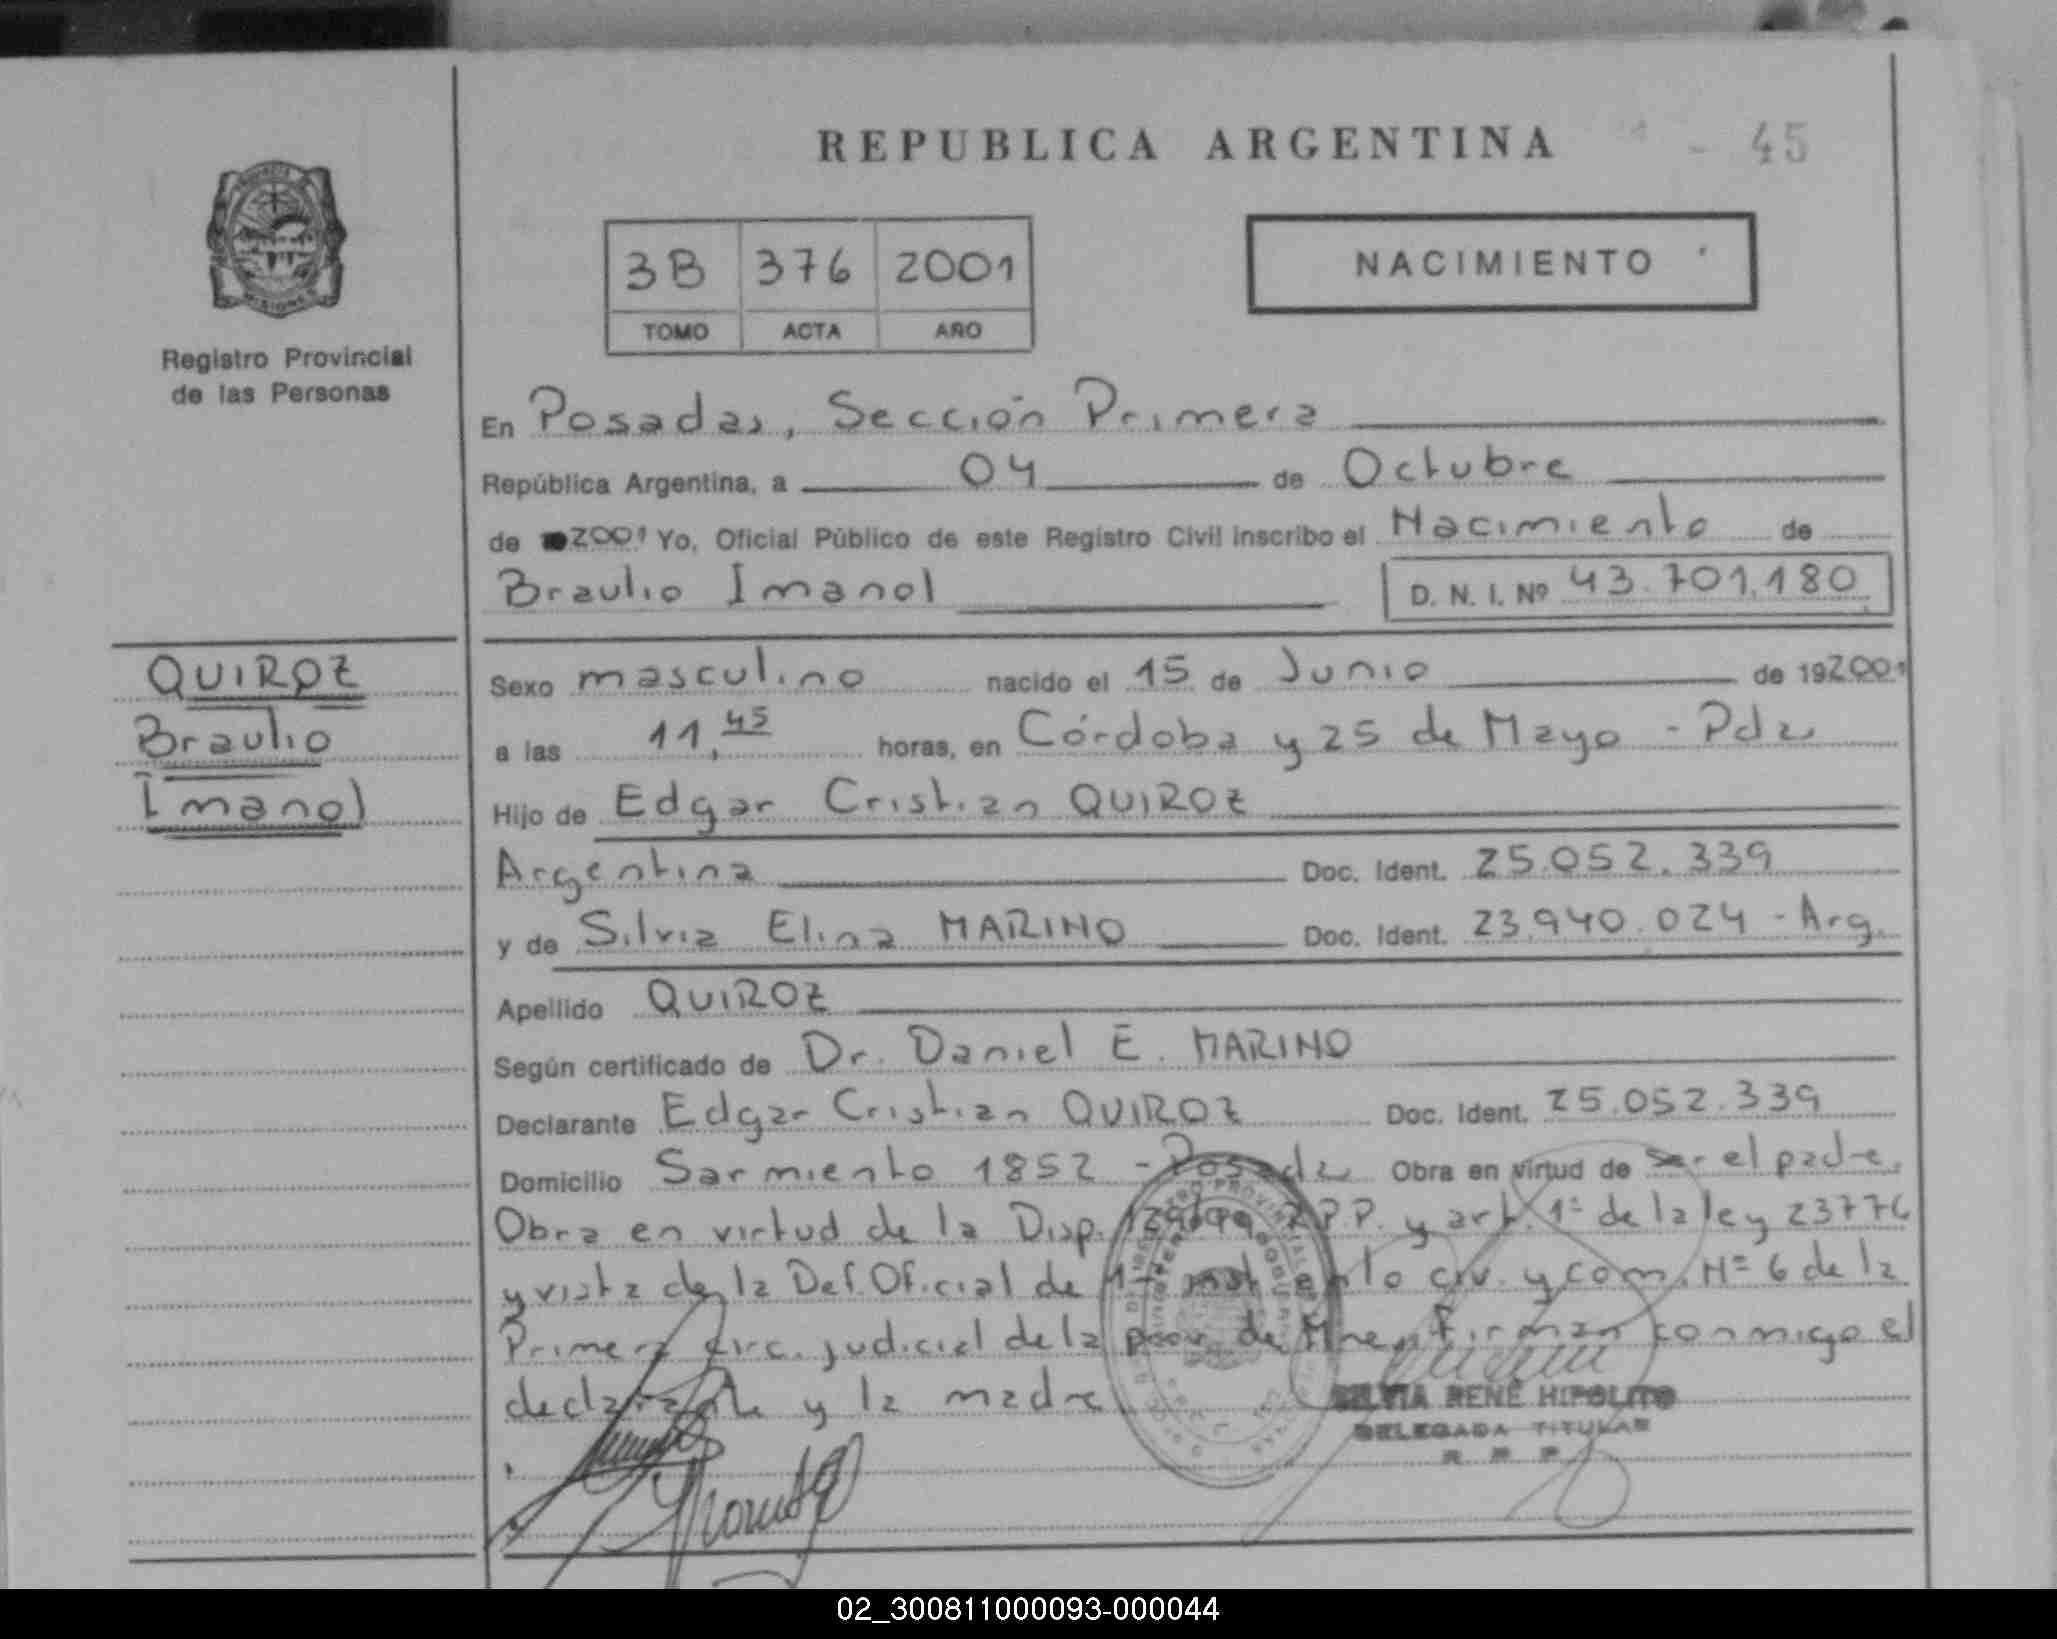 REPUBLICA ARGENTINA - 45
3B 376 2001
TOMO ACTA AÑO
NACIMIENTO
MISIONES
Registro Provincial
de las Personas
En Posadas, Sección Primera
República Argentina, a 04 de Octubre
de 2001 Yo, Oficial Público de este Registro Civil inscribo el Nacimiento de
Braulio Imanol D. N. I. Nº 43.701.180
QUIROZ
Braulio
Imanol
Sexo masculino nacido el 15 de Junio de 192001
a las 11,45 horas, en Córdoba y 25 de Mayo - Pdas
Hijo de Edgar Cristian QUIROZ
Argentina Doc. Ident. 25.052.339
y de Silvia Elina MARINO Doc. Ident. 23.940.024 - Arg.
Apellido QUIROZ
Según certificado de Dr. Daniel E. MARINO
Declarante Edgar Cristian QUIROZ Doc. Ident. 25.052.339
Domicilio Sarmiento 1852 - Posadas Obra en virtud de ser el padre.
Obra en virtud de la Disp. R.P.P. y art. 1º de la ley 23776
y vista de la Def. Oficial de 1ª inst en lo civ. y com. Nº 6 de la
Primera circ. judicial de la prov. de Mnes. Firman conmigo el
declarante y la madre
SILVIA RENÉ HIPOLITO
DELEGADA TITULAR
R P P
02_300811000093-000044